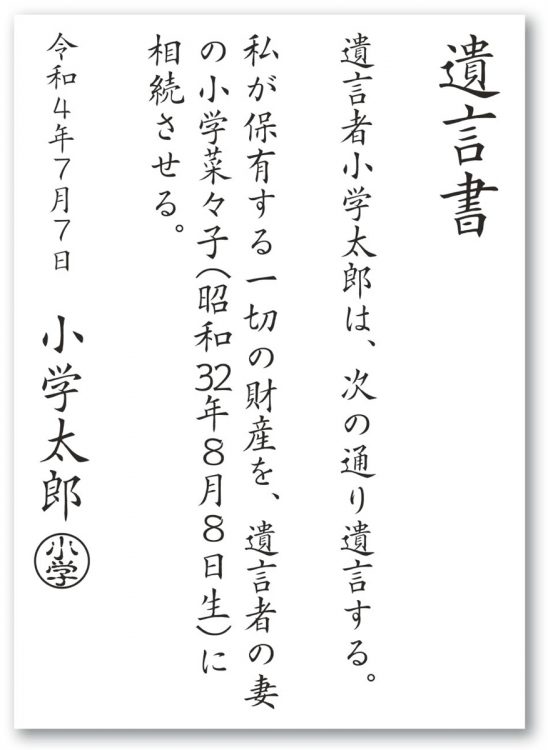 遺言書
遺言者小学太郎は、次の通り遺言する。
私が保有する一切の財産を、遺言者の妻
の小学菜々子(昭和32年8月8日生)に
相続させる。
令和4年7月7日
小学太郎
小学